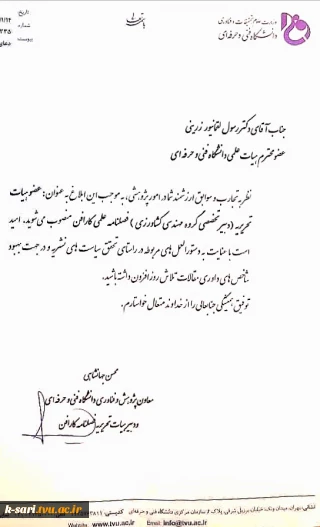 وزارت علوم، تحقیقات و فناوری
دانشگاه فنی و حرفه‌ای
تاریخ
شماره
پیوست
جناب آقای دکتر رسول لقمانپور زرینی
عضو محترم هیات علمی دانشگاه فنی و حرفه‌ای
نظر به تجارب و سوابق ارزشمند شما در امور پژوهشی، به موجب این ابلاغ به عنوان: عضو هیات
تحریریه (دبیر تخصصی گروه مهندسی کشاورزی) فصلنامه علمی کارافن منصوب می‌شوید. امید
است با عنایت به دستورالعمل‌های مربوطه در راستای تحقق سیاست‌های نشریه و در جهت بهبود
شاخص‌های داوری مقالات تلاش روزافزون داشته باشید.
توفیق همیشگی جنابعالی را از خداوند متعال خواستارم.
محسن جهانشاهی
معاون پژوهش و فناوری دانشگاه فنی و حرفه‌ای
و دبیر هیات تحریریه فصلنامه کارافن
نشانی: تهران، میدان ونک، خیابان برزیل شرقی، پلاک ۴ سازمان مرکزی دانشگاه فنی و حرفه‌ای کدپستی:
Website: www.tvu.ac.ir Email: info@tvu.ac.ir
k-sari.tvu.ac.ir